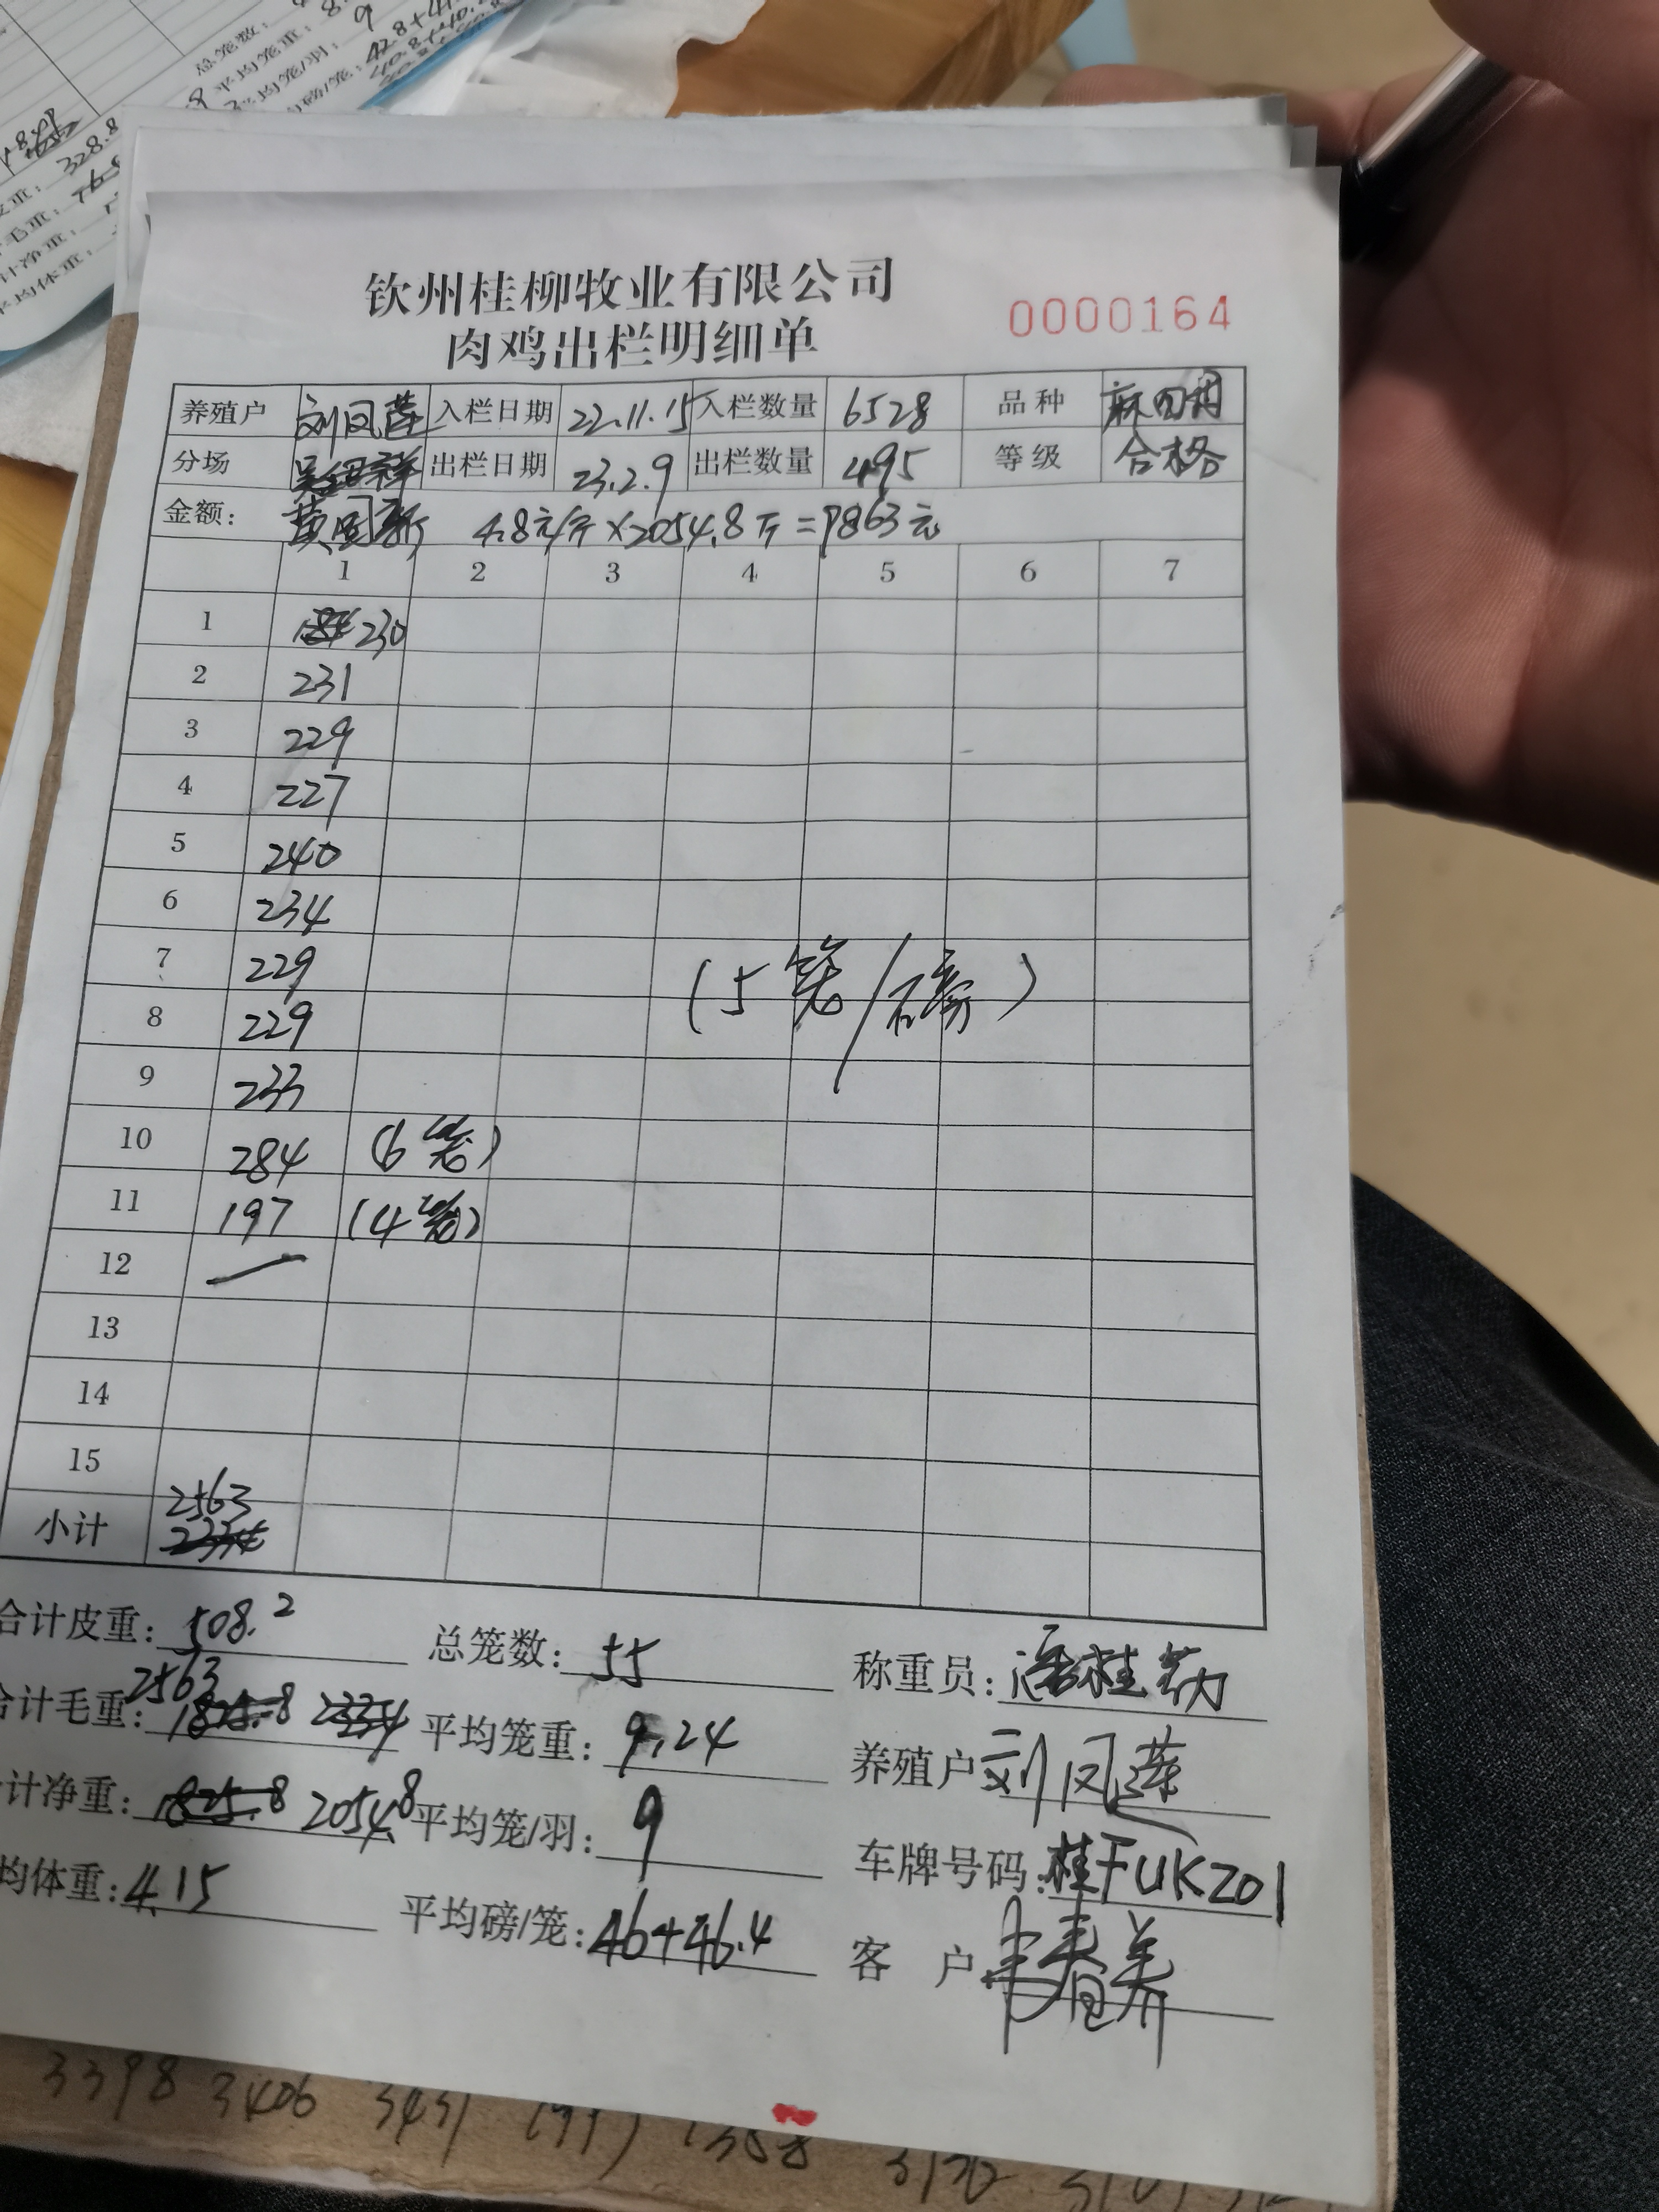 钦州桂柳牧业有限公司
肉鸡出栏明细单
0000164
养殖户 刘凤莲 入栏日期 22.11.15 入栏数量 6528 品种
分场 出栏日期 23.2.9 出栏数量 495 等级 合格
金额: 4.8元/斤×2054.8斤=9863元
1 2 3 4 5 6 7
1 230
2 231
3 229
4 227
5 240
6 234
7 229 (5笼/磅)
8 229
9 233
10 284 (6笼)
11 197 (4笼)
12 —
13
14
15
小计 2563
合计皮重: 508.2 总笼数: 55 称重员:
合计毛重: 2563 平均笼重: 9.24 养殖户 刘凤莲
计净重: 2054.8 平均笼/羽: 9 车牌号码: 桂FUKZ01
均体重: 4.15 平均磅/笼: 46+46.4 客 户
3398 3406 3431